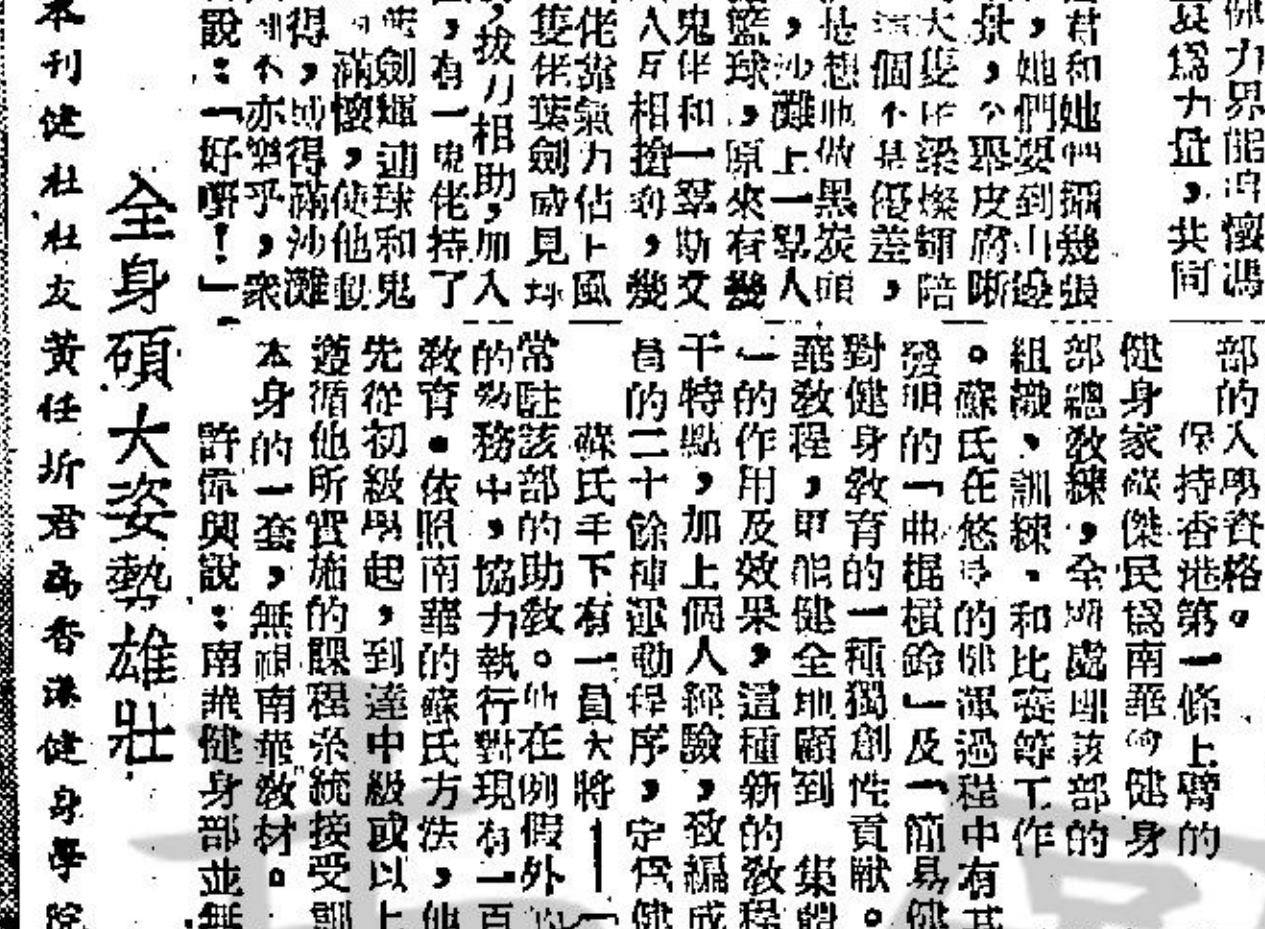 力界能鴻懷馮
為力量，共同
君和她們攝幾張
，她們要到山邊
景，今眾皮膚晰
大隻佬梁燦輝陪
這個不是優差，
是想他做黑炭頭
，沙灘上一羣人
籃球，原來有幾
鬼佬和一羣斯文
人互相搶，幾
佬靠氣力佔上風
隻佬葉劍威見球
，拔刀相助，加入
，有一鬼佬持了
葉劍輝連球和鬼
滿懷，使他動
得，博得滿沙灘
不亦樂乎，衆
說：「好嘢！」。
部的入學資格。
保持香港第一條上臂的
健身家蘇傑民為南華的健身
部總教練，全處理該部的
組織、訓練、和比賽等工作
。蘇氏在悠長的健運過程中有其
發明的「曲棍槓鈴」及「簡易健
對健身教育的一種獨創性貢獻。
華教程，更能健全地顧到　集體
」的作用及效果，這種新的教程
干特點，加上個人經驗，致編成
員的二十餘種運動程序，定為健
蘇氏手下有一員大將——
常駐該部的助教。他在例假外的
的教務中，協力執行對現有一百
教育。依照南華的蘇氏方法，他
先從初級學起，到達中級或以上
遵循他所實施的課程系統接受訓
本身的一套，無視南華教材。
許偉興說：南華健身部並無
全身碩大姿勢雄壯
本刊健社社友黃任圻君為香港健身學院